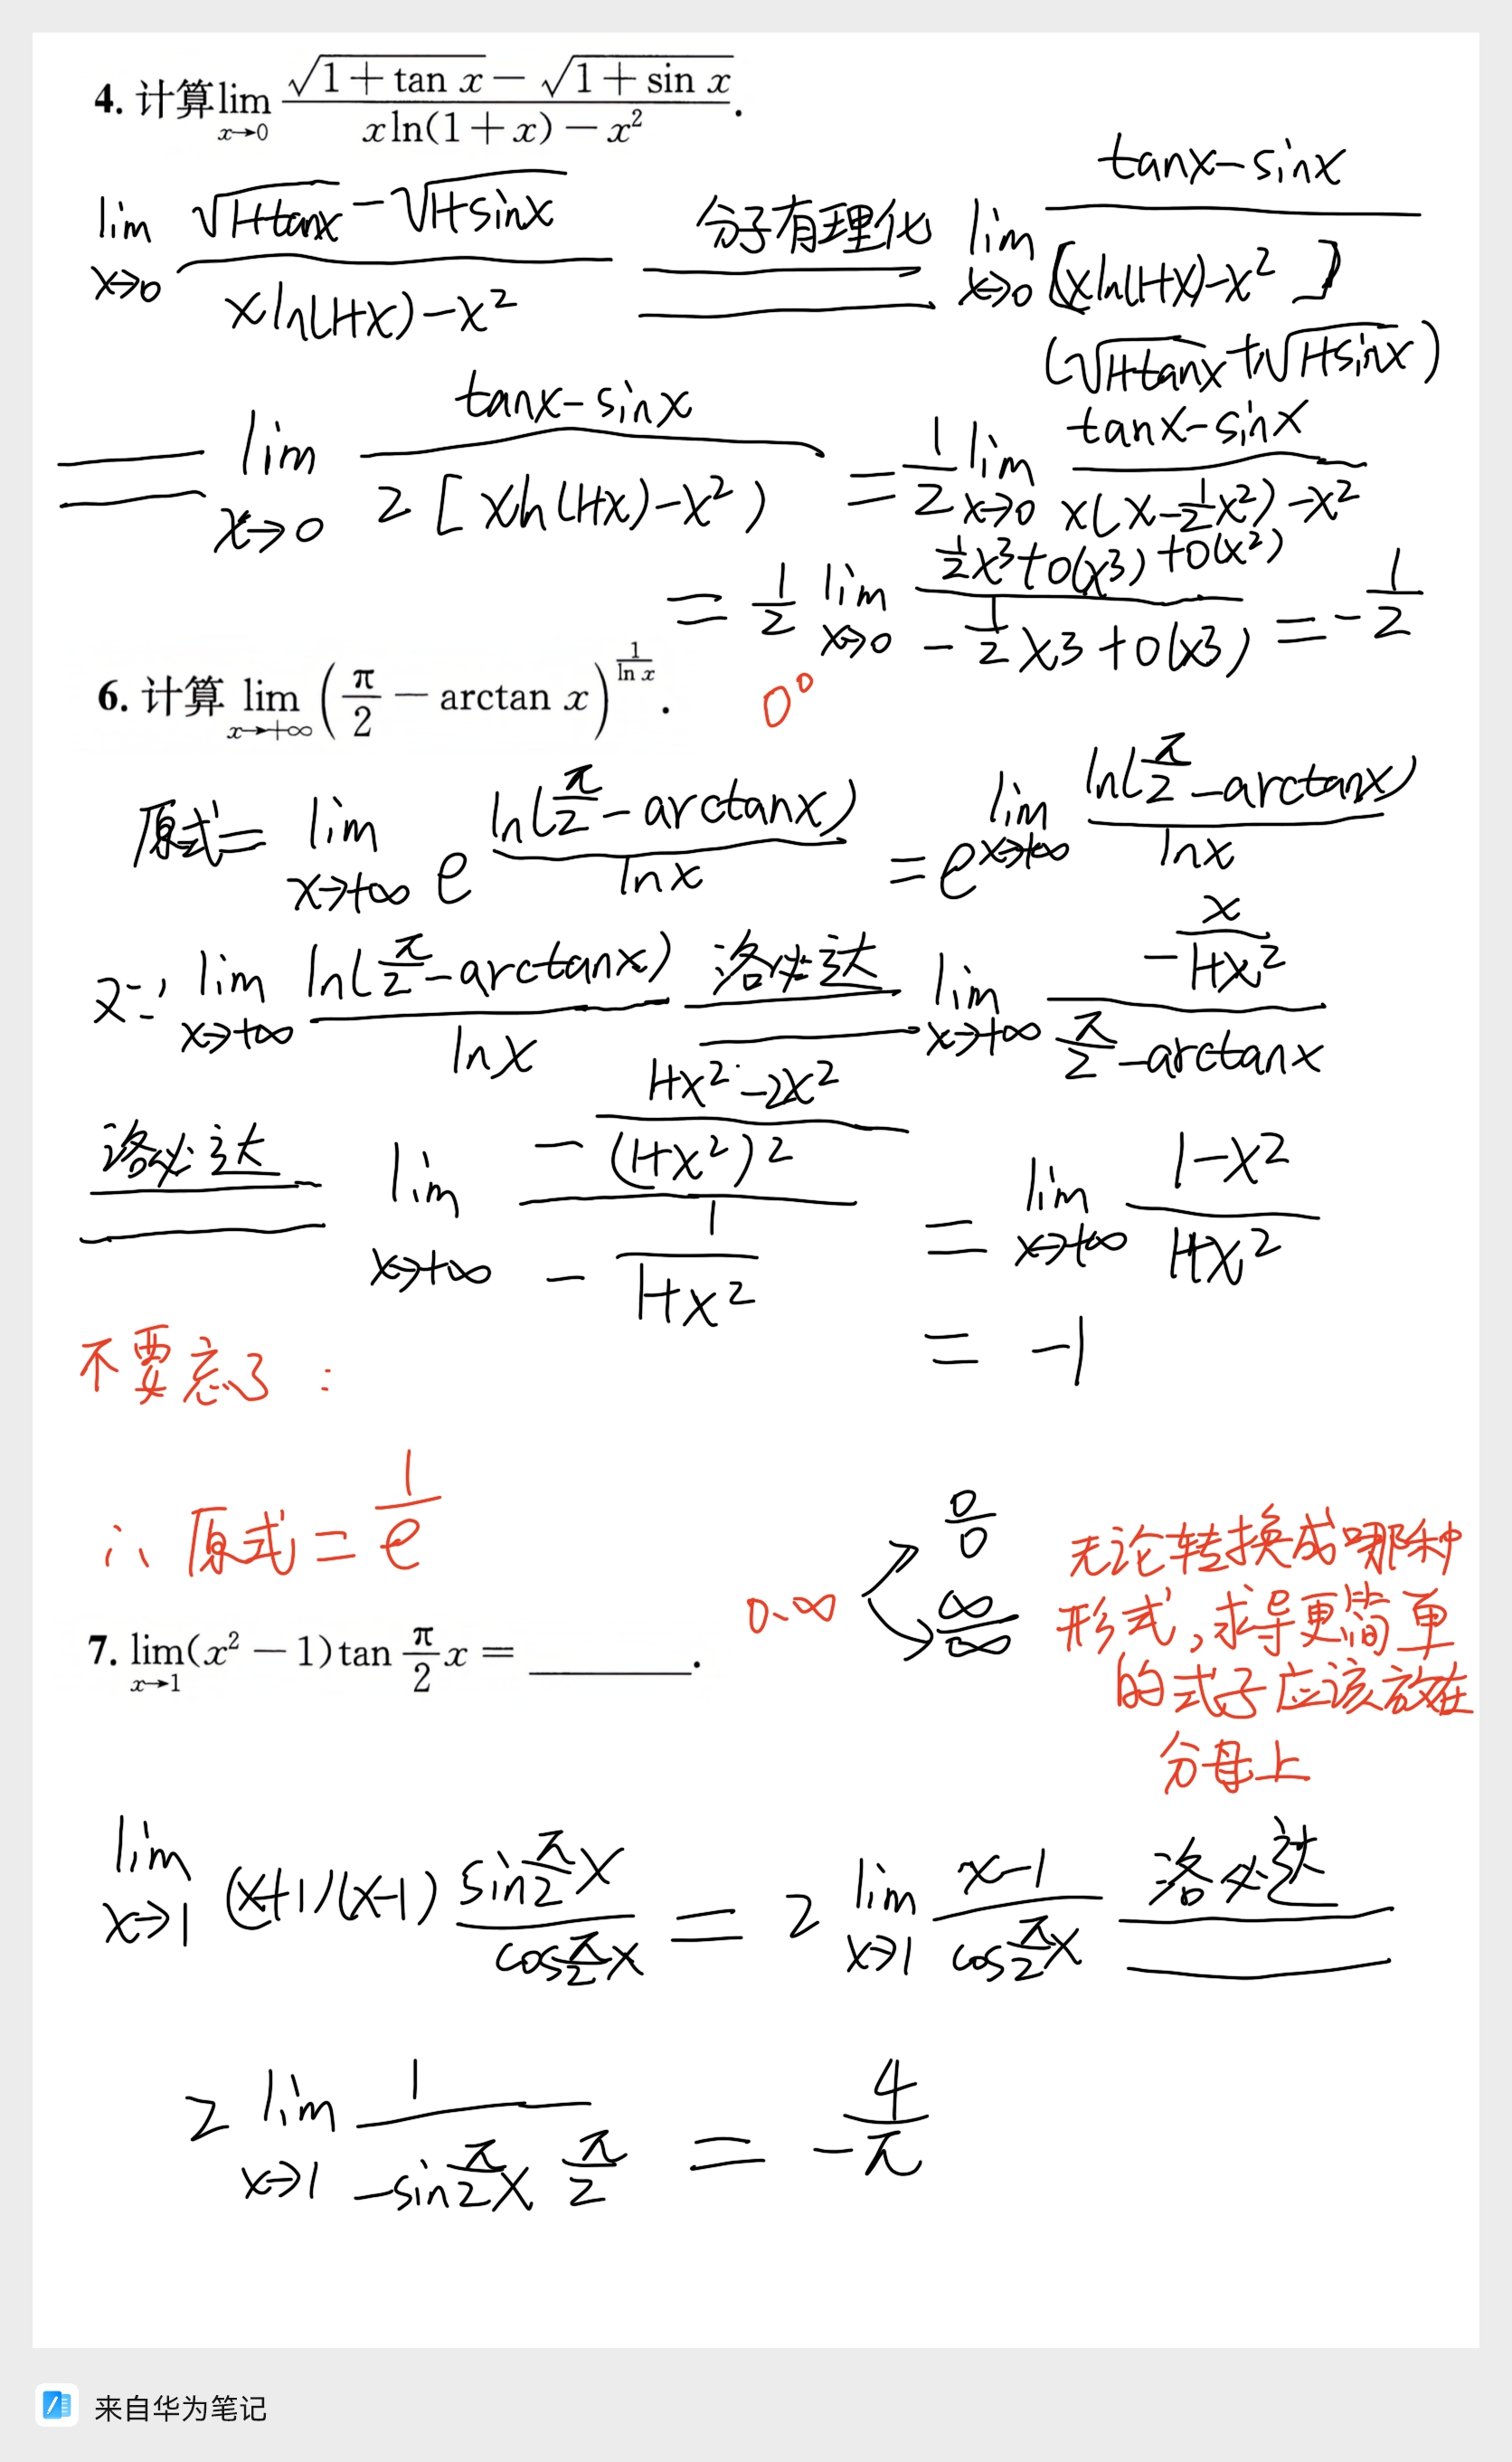 4. 计算 lim_{x→0} (√(1+tan x) − √(1+sin x)) / (x ln(1+x) − x²).
lim_{x→0} (√(1+tanx) − √(1+sinx)) / (xln(1+x)−x²) 分子有理化 lim_{x→0} (tanx−sinx) / ([xln(1+x)−x²] (√(1+tanx)+√(1+sinx)))
= lim_{x→0} (tanx−sinx) / (2[xln(1+x)−x²)) = 1/2 lim_{x→0} (tanx−sinx) / (x(x−1/2x²)−x² +o(x²))
= 1/2 lim_{x→0} (1/2x³+o(x³)) / (−1/2x3+o(x3)) = −1/2
6. 计算 lim_{x→+∞} (π/2 − arctan x)^{1/ln x}. 0⁰
原式= lim_{x→+∞} e^{ln(π/2−arctanx)/lnx} = e^{lim_{x→+∞} ln(π/2−arctanx)/lnx}
又∵ lim_{x→+∞} ln(π/2−arctanx)/lnx 洛必达 lim_{x→+∞} (−x/(1+x²)) / (π/2−arctanx)
洛必达 lim_{x→+∞} (−(1+x²−2x²)/(1+x²)²) / (−1/(1+x²)) = lim_{x→+∞} (1−x²)/(1+x²)
= −1
不要忘了:
∴ 原式= 1/e
7. lim_{x→1} (x² − 1) tan π/2 x = ______.
0·∞ 0/0 ∞/∞
无论转换成哪种
形式,求导更简单
的式子应该放在
分母上
lim_{x→1} (x+1)(x−1) sinπ/2x / cosπ/2x = 2 lim_{x→1} (x−1)/cosπ/2x 洛必达
2 lim_{x→1} 1/(−sinπ/2x π/2) = 4/−π
来自华为笔记